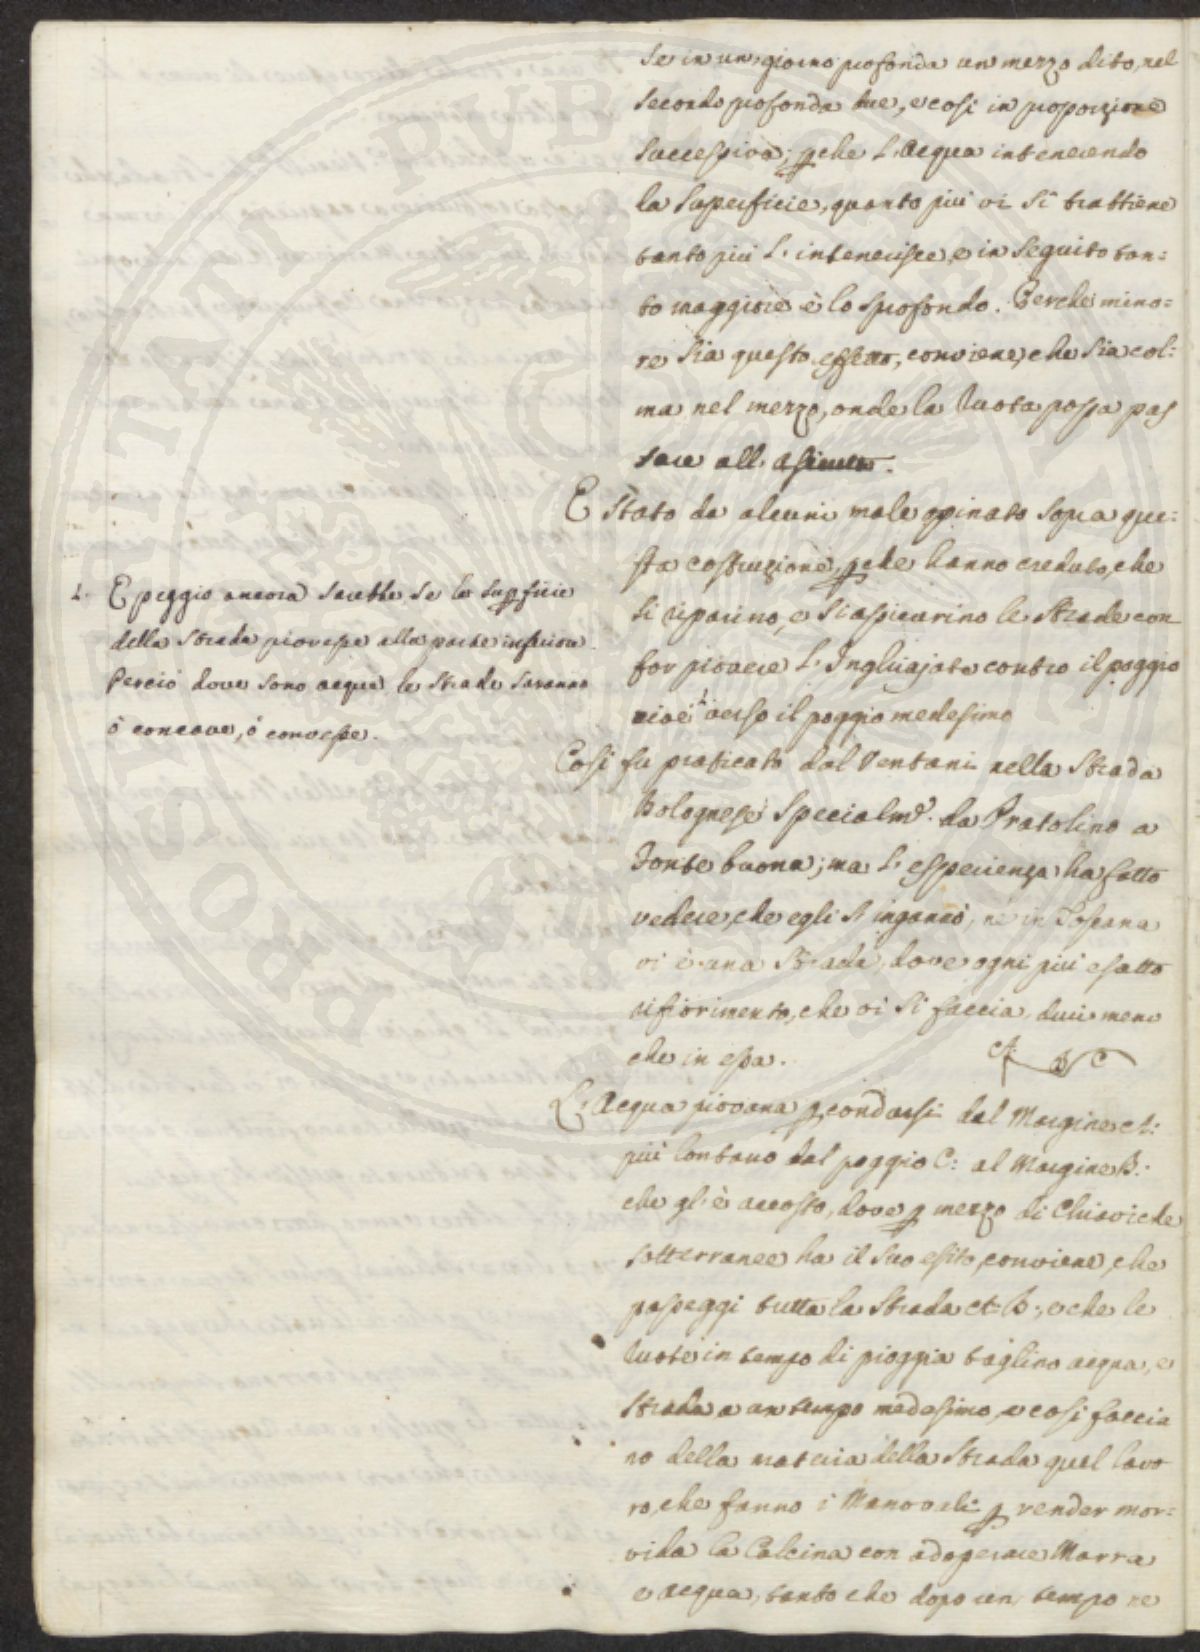 se in un giorno profonda un mezzo dito, nel
secondo profonda due, e cosi in proporzione
successiva; pche l'Acqua intenerendo
la superficie, quanto più vi si trattiene
tanto più l'intenerisce, e in seguito tan=
to maggiore è lo sprofondo. Perche mino=
re sia questo effetto, conviene, che sia col=
ma nel mezzo, onde la Ruota possa pas
sare all' asciutto.
E stato da alcuni male opinato sopra que=
sta costruzione, pche hanno creduto, che
si riparino, e si assicurino le Strade con
far piovere l'Inghiajata contro il poggio
cioè verso il poggio medesimo
1. E peggio ancora sarebbe se la supficie
della Strada piovesse alla parte inferiore.
Perciò dove sono acque le Strade saranno
ò concave, ò convesse.
Cosi fu praticato dal Ventani nella Strada
Bolognese specialmẽ. da Pratolino a
Fontebuona; ma l'esperienza ha fatto
vedere, che egli s'ingannò, nè in Toscana
vi è una Strada, dove ogni più esatto
rifiorimento, che vi si faccia, duri meno
che in essa.
A B C
L'Acqua piovana p condursi dal Margine A:
più lontano dal poggio C: al Margine B:
che gl'è accosto, dove p mezzo di Chiaviche
sotterranee ha il suo esito, conviene, che
passeggi tutta la Strada A: B:, e che le
Ruote in tempo di pioggia taglino acqua, e
Strada a un tempo medesimo, e cosi faccia
no della materia della Strada quel lavo
ro, che fanno i Manovali p render mor=
vida la Calcina con adoperare Marra
e acqua, tanto che dopo un tempo ne
PROSPERITATI PUBLICAE